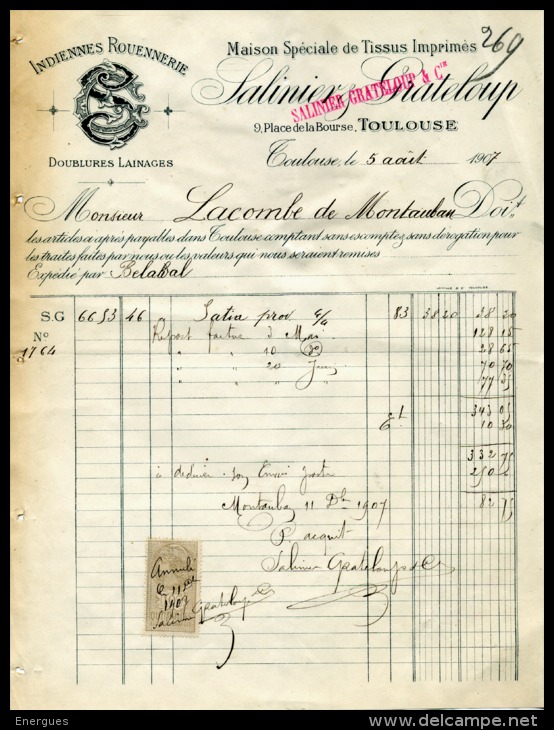 Indiennes Rouennerie
SG
Doublures Lainages
Maison Spéciale de Tissus Imprimés
269
Salinier & Grateloup
SALINIER GRATELOUP & Cie
9, Place de la Bourse, TOULOUSE
Toulouse, le 5 août 1907
Monsieur Lacombe de Montauban Doit
les articles ci après payables dans Toulouse comptant sans escompte, sans dérogation pour
les traites faites par nous ou les valeurs qui nous seraient remises
Expédié par Belabal
S.G 6653 46 Satin prov 83 38 20 38 20
No Report facture 3 Mai 128 15
1764 " " 10 28 65
" " 20 70 70
77 35
343 05
10 30
332 75
à déduire 250
Montauban 11 1907 82 75
P. acquit
Salinier Grateloup & Cie
Annulé
le 11
1907
Salinier Grateloup
Energues
http://www.delcampe.net